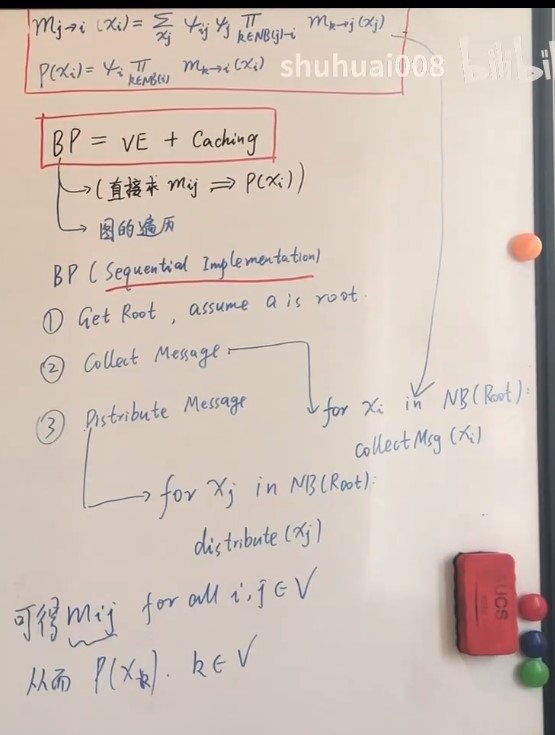 m_{j→i}(x_i) = Σ_{x_j} ψ_{ij} ψ_j ∏_{k∈NB(j)-i} m_{k→j}(x_j)
P(x_i) = ψ_i ∏_{k∈NB(i)} m_{k→i}(x_i)
shuhuai008 bilibil
BP = VE + Caching
(直接求 m_{ij} ⇒ P(x_i))
图的遍历
BP (Sequential Implementation)
① Get Root, assume a is root.
② Collect Message
for x_i in NB(Root):
collectMsg(x_i)
③ Distribute Message
for x_j in NB(Root):
distribute(x_j)
可得 m_{ij} for all i,j∈V
从而 P(x_k). k∈V
UCS